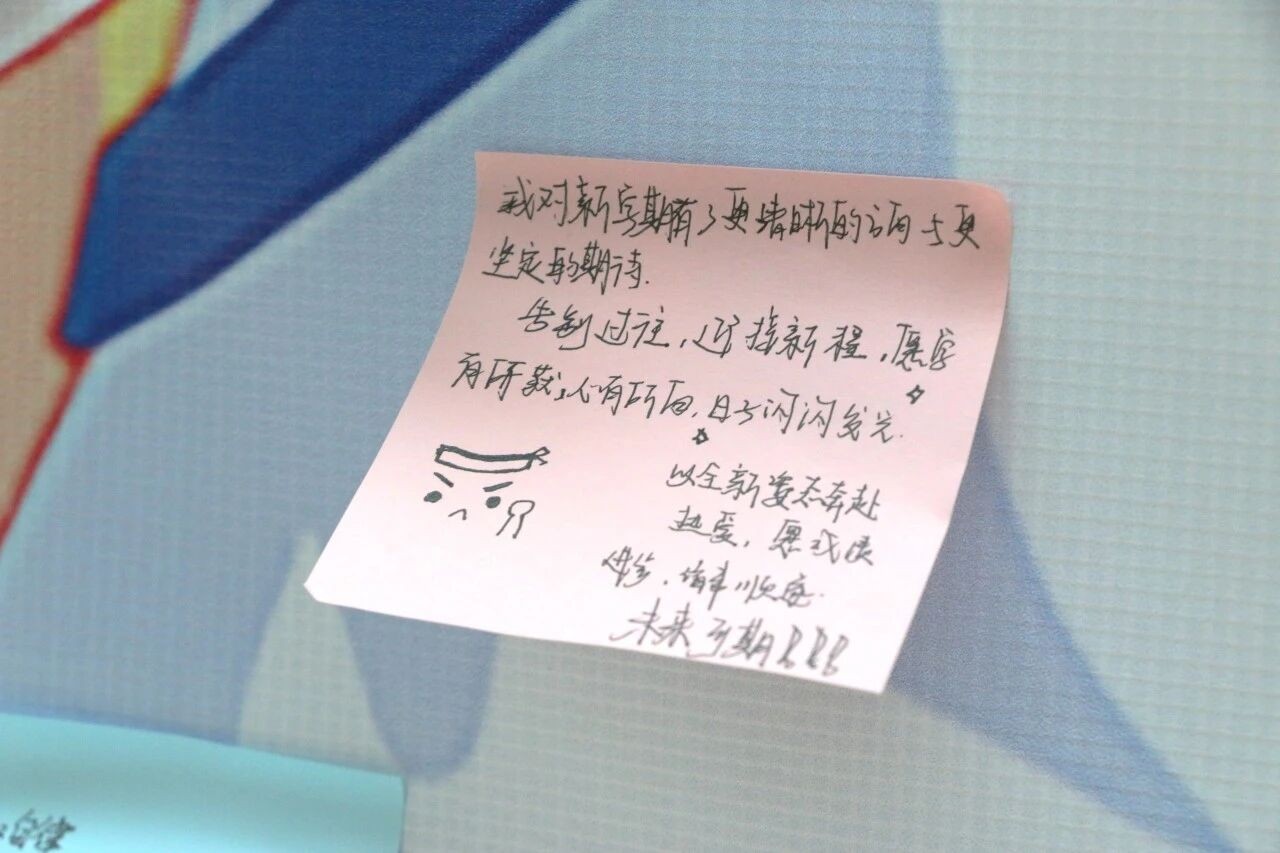 我对新学期有了更清晰的方向与更
坚定的期待.
告别过往,迎接新程,愿学
有所获,心有所向,日子闪闪发光.
以全新姿态奔赴
热爱,愿我
皆顺遂.
未来可期!!!
自律